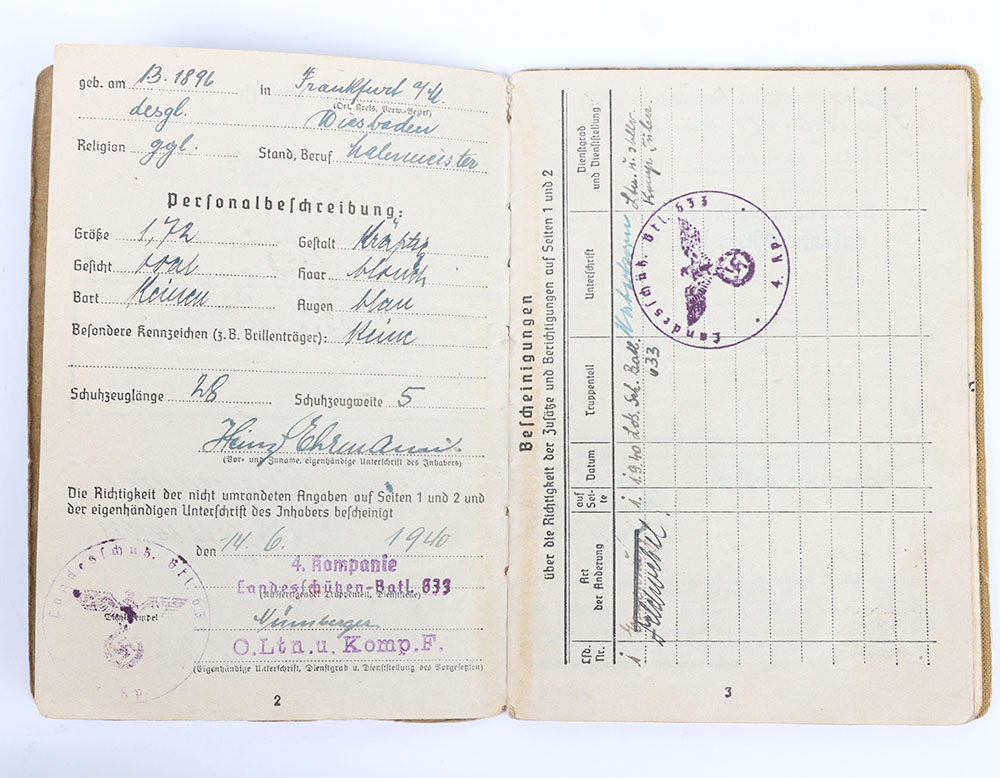 geb. am 1.3.1896 in Frankfurt a/M.
(Ort, Kreis, Verw.-Bezirk)
desgl. Wiesbaden
Religion ggl. Stand, Beruf
Personalbeschreibung:
Größe 1,72 Gestalt kräftig
Gesicht oval Haar
Bart Keinen Augen blau
Besondere Kennzeichen (z. B. Brillenträger): Keine
Schuhzeuglänge 28 Schuhzeugweite 5
Heinz Ehrmann
(Vor- und Zuname, eigenhändige Unterschrift des Inhabers)
Die Richtigkeit der nicht umrandeten Angaben auf Seiten 1 und 2 und
der eigenhändigen Unterschrift des Inhabers bescheinigt
den 14. 6. 1940
4. Kompanie
Landesschützen-Batl. 633
(Ausfertigender Truppenteil, Dienststelle)
Nürnberger
O.Ltn. u. Komp. F.
(Eigenhändige Unterschrift, Dienstgrad u. Dienststellung des Vorgesetzten)
Landesschütz. Btl. 633
Dienststempel
2
Bescheinigungen
über die Richtigkeit der Zusätze und Berichtigungen auf Seiten 1 und 2
Lfd. Nr. Art der Änderung auf Seite Datum Truppenteil Unterschrift Dienstgrad und Dienststellung
1 Feldwebel 1. 1.9.40 Lds. Sch. Batl. 633 Ltn. u.
Landesschütz. Btl. 633
4. Kp.
3